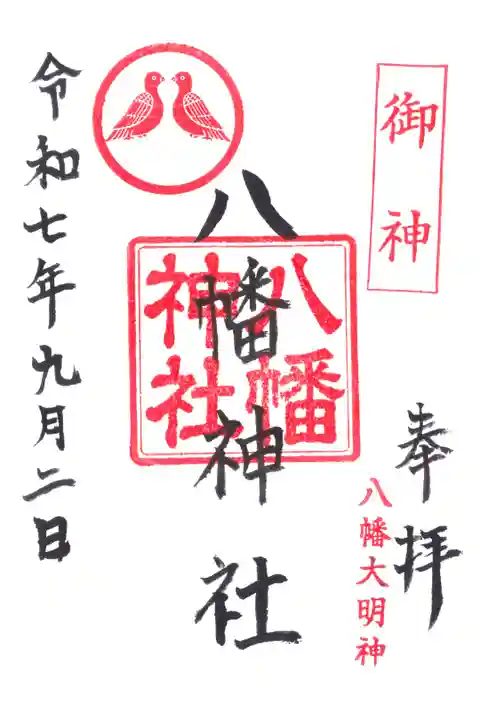 御神
奉拝
八幡大明神
八幡神社
八幡
神社
令和七年九月二日